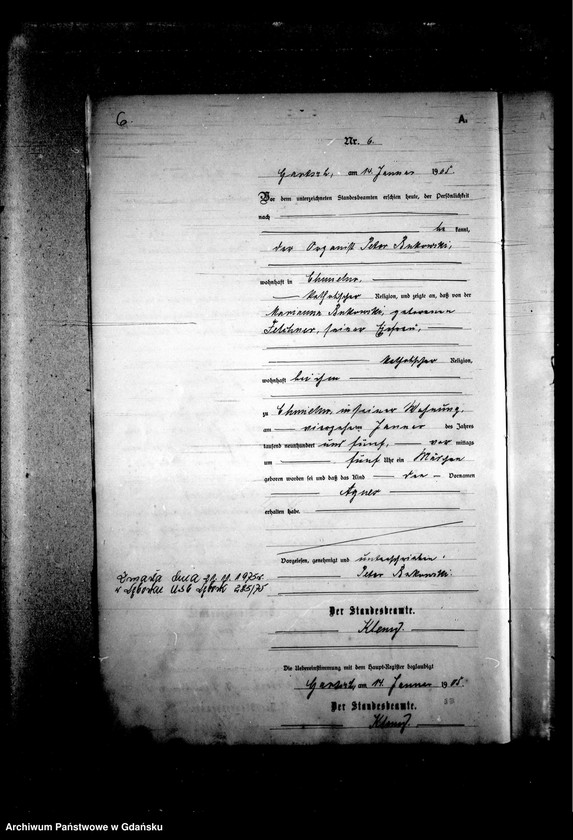 6.
A.
Nr. 6.
am 14 Januar 1905.
Vor dem unterzeichneten Standesbeamten erschien heute, der Persönlichkeit
nach
be kannt,
der Organist Peter
wohnhaft in Chmielno,
katholischer Religion, und zeigte an, daß von der
Marianna geborenen
seiner Ehefrau,
katholischer Religion,
wohnhaft bei ihm
zu Chmielno, in seiner Wohnung,
am vierzehn Januar des Jahres
tausend neunhundert und fünf, vor mittags
um fünf Uhr ein Mädchen
geboren worden sei und daß das Kind den Vornamen
Agnes
erhalten habe.
Vorgelesen, genehmigt und unterschrieben.
Peter
Zmarła dnia 1975r.
w USC 285/75
Der Standesbeamte.
Die Uebereinstimmung mit dem Haupt-Register beglaubigt
am 14 Januar 1905.
Der Standesbeamte.
Archiwum Państwowe w Gdańsku